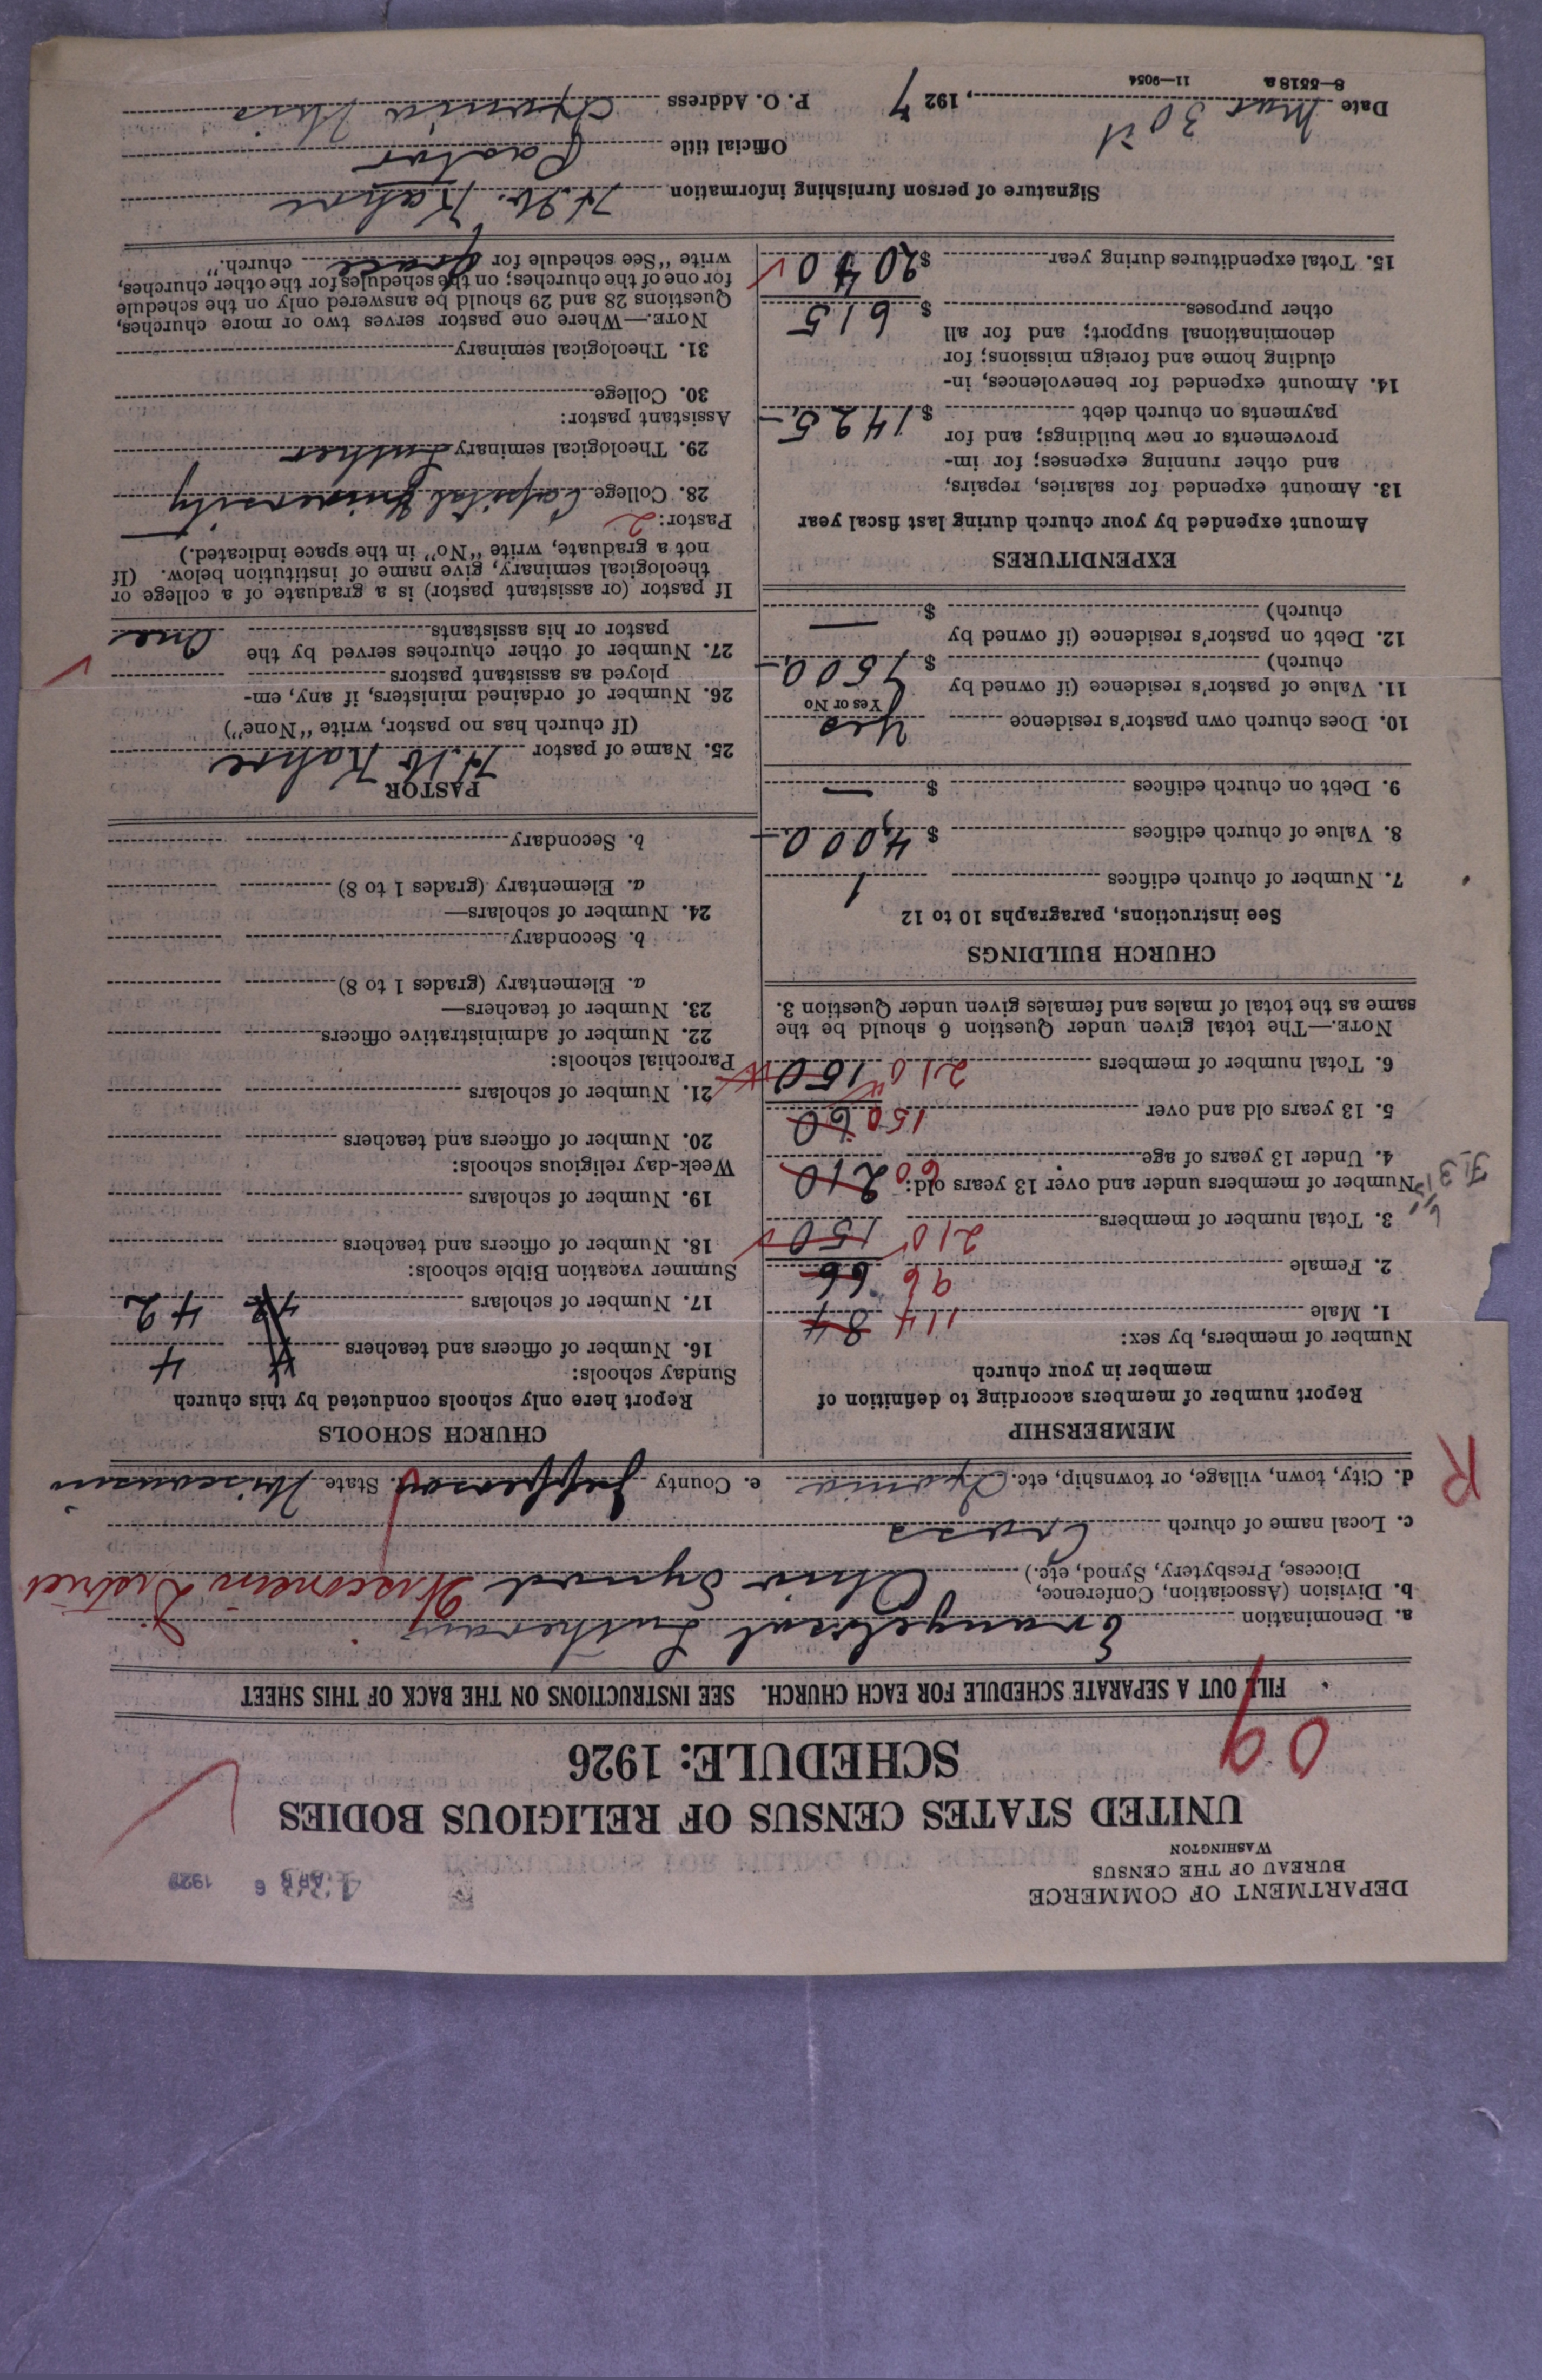 DEPARTMENT OF COMMERCE
BUREAU OF THE CENSUS
WASHINGTON
APR 6 1927
UNITED STATES CENSUS OF RELIGIOUS BODIES
SCHEDULE: 1926
09
FILL OUT A SEPARATE SCHEDULE FOR EACH CHURCH. SEE INSTRUCTIONS ON THE BACK OF THIS SHEET
a. Denomination Evangelical Lutheran
b. Division (Association, Conference,
Diocese, Presbytery, Synod, etc.) Ohio Synod Wisconsin District
c. Local name of church Cross
d. City, town, village, or township, etc. Ixonia e. County Jefferson State Wisconsin
R
MEMBERSHIP
Report number of members according to definition of
member in your church
Number of members, by sex:
1. Male 114 84
2. Female 96 66
3. Total number of members 210 150
Number of members under and over 13 years old:
4. Under 13 years of age 60 210
5. 13 years old and over 150 60
6. Total number of members 210 150
NOTE.—The total given under Question 6 should be the
same as the total of males and females given under Question 3.
CHURCH BUILDINGS
See instructions, paragraphs 10 to 12
7. Number of church edifices 1
8. Value of church edifices $ 4,000
9. Debt on church edifices $ —
10. Does church own pastor's residence Yes
Yes or No
11. Value of pastor's residence (if owned by
church) $ 7500
12. Debt on pastor's residence (if owned by
church) $ —
EXPENDITURES
Amount expended by your church during last fiscal year
13. Amount expended for salaries, repairs,
and other running expenses; for im-
provements or new buildings; and for
payments on church debt $ 1425
14. Amount expended for benevolences, in-
cluding home and foreign missions; for
denominational support; and for all
other purposes $ 615
15. Total expenditures during year $ 2040
CHURCH SCHOOLS
Report here only schools conducted by this church
Sunday schools:
16. Number of officers and teachers 4 4
17. Number of scholars 42 42
Summer vacation Bible schools:
18. Number of officers and teachers
19. Number of scholars
Week-day religious schools:
20. Number of officers and teachers
21. Number of scholars
Parochial schools:
22. Number of administrative officers
23. Number of teachers—
a. Elementary (grades 1 to 8)
b. Secondary
24. Number of scholars—
a. Elementary (grades 1 to 8)
b. Secondary
PASTOR
25. Name of pastor H. W. Kahre
(If church has no pastor, write "None")
26. Number of ordained ministers, if any, em-
ployed as assistant pastors
27. Number of other churches served by the
pastor or his assistants One
If pastor (or assistant pastor) is a graduate of a college or
theological seminary, give name of institution below. (If
not a graduate, write "No" in the space indicated.)
Pastor: 2
28. College Capital University
29. Theological seminary Luther
Assistant pastor:
30. College
31. Theological seminary
NOTE.—Where one pastor serves two or more churches,
Questions 28 and 29 should be answered only on the schedule
for one of the churches; on the schedules for the other churches,
write "See schedule for Grace church."
Signature of person furnishing information H. W. Kahre
Official title Pastor
Date Mar 30th, 1927 P. O. Address Ixonia Wis
8—5518 a 11—9054